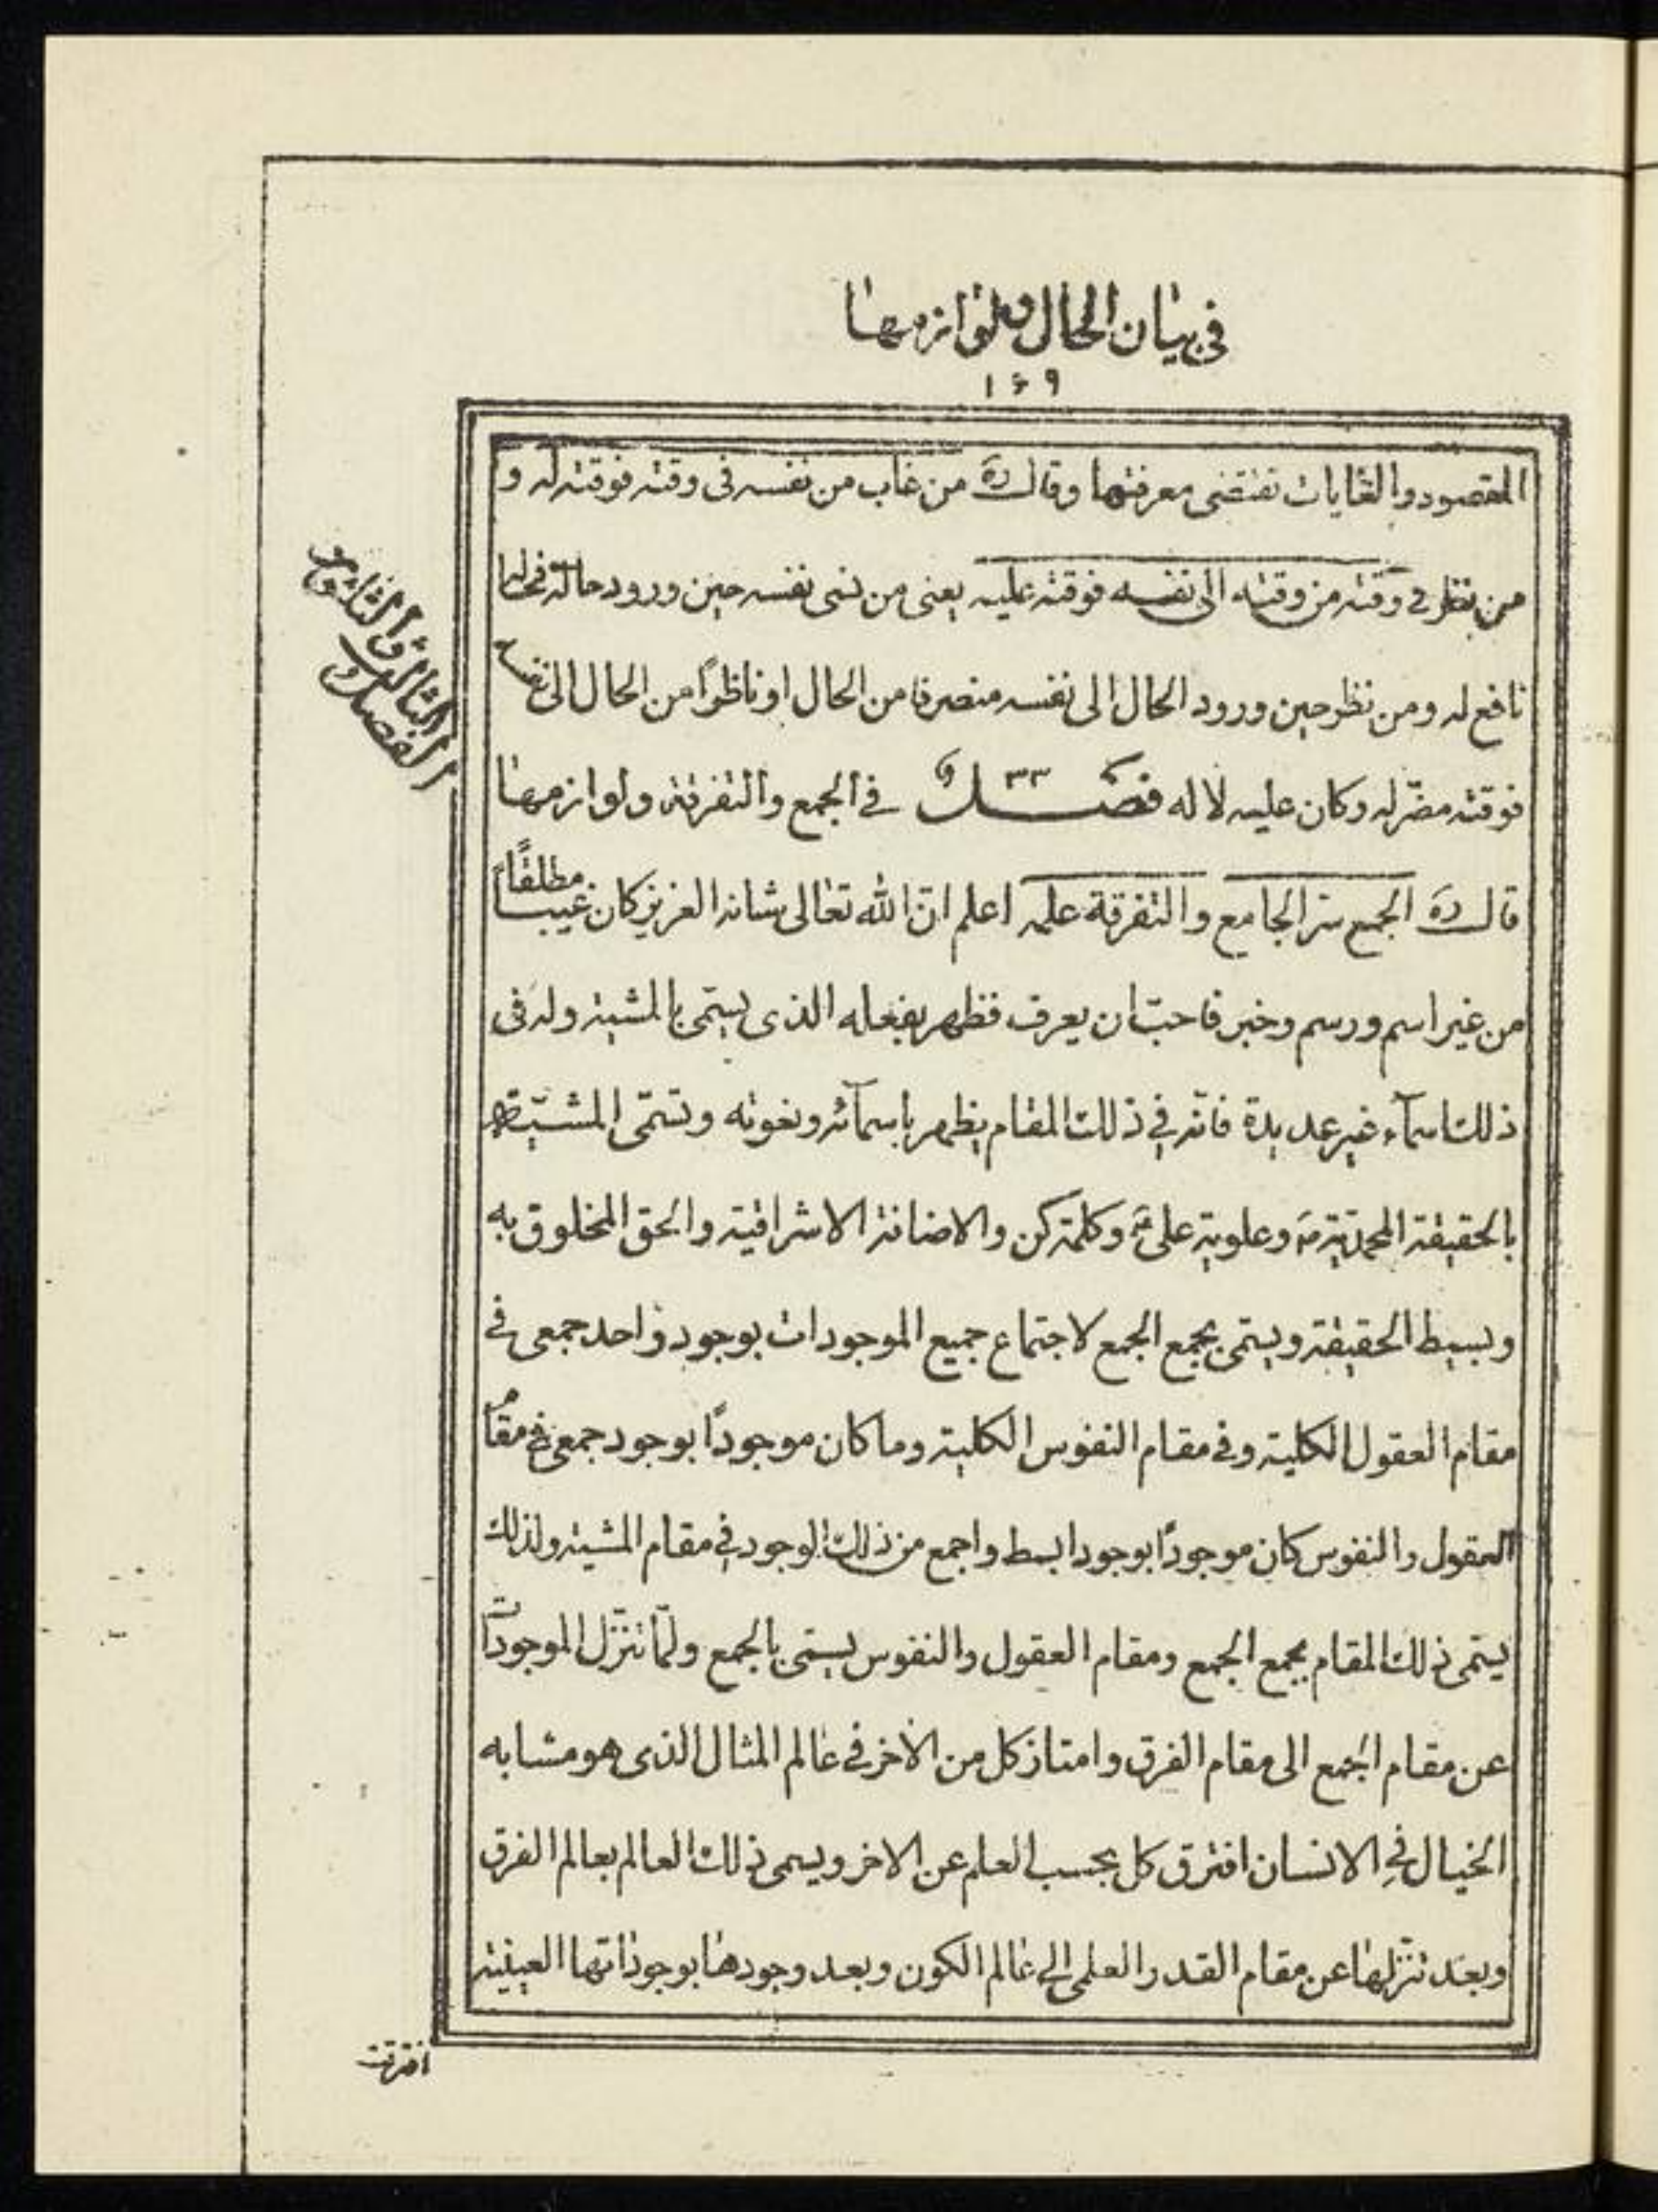 في بيان الحال ولوازمها
۱۴۹
المقصود والغايات تقتضى معرفتها وقال ره من غاب من نفسه فى وقته فوقته له و
من نظر في وقته من وقته الى نفسه فوقته عليه يعنى من نسى نفسه حين ورود حالة فحاله
نافع له ومن نظر حين ورود الحال الى نفسه منصرفا من الحال او ناظرًا من الحال الى نفسه
فوقته مضرّ له وكان عليه لا له فصــل ۳۳ في الجمع والتفرقة ولوازمها
الفصل الثالث والثلثون
قال ره الجمع سرّ الجامع والتفرقة علمه اعلم انّ الله تعالى شانه العزيز كان غيبًا مطلقًا
من غير اسم ورسم وخبر فاحبّ ان يعرف فظهر بفعله الذى يسمّى بالمشية وله فى
ذلك اسمآء غير عديدة فانّه في ذلك المقام يظهر باسمآئه ونعوته وتسمّى المشيّة
بالحقيقة المحمديّة ص وعلوية على ع وكلمة كن والاضافة الاشراقية والحق المخلوق به
وبسيط الحقيقة ويسمّى بجمع الجمع لاجتماع جميع الموجودات بوجود واحد جمعى في
مقام العقول الكلية وفي مقام النفوس الكلية وما كان موجودًا بوجود جمعى في مقام
العقول والنفوس كان موجودًا بوجود ابسط واجمع من ذلك الوجود في مقام المشية ولذلك
يسمّى ذلك المقام بجمع الجمع ومقام العقول والنفوس يسمّى بالجمع ولمّا تنزّل الموجودات
عن مقام الجمع الى مقام الفرق وامتاز كل من الاخر في عالم المثال الذى هو مشابه
الخيال في الانسان افترق كل بحسب العلم عن الاخر ويسمى ذلك العالم بعالم الفرق
وبعد تنزّلها عن مقام القدر العلمى الى عالم الكون وبعد وجودها بوجوداتها العينية
افترقت